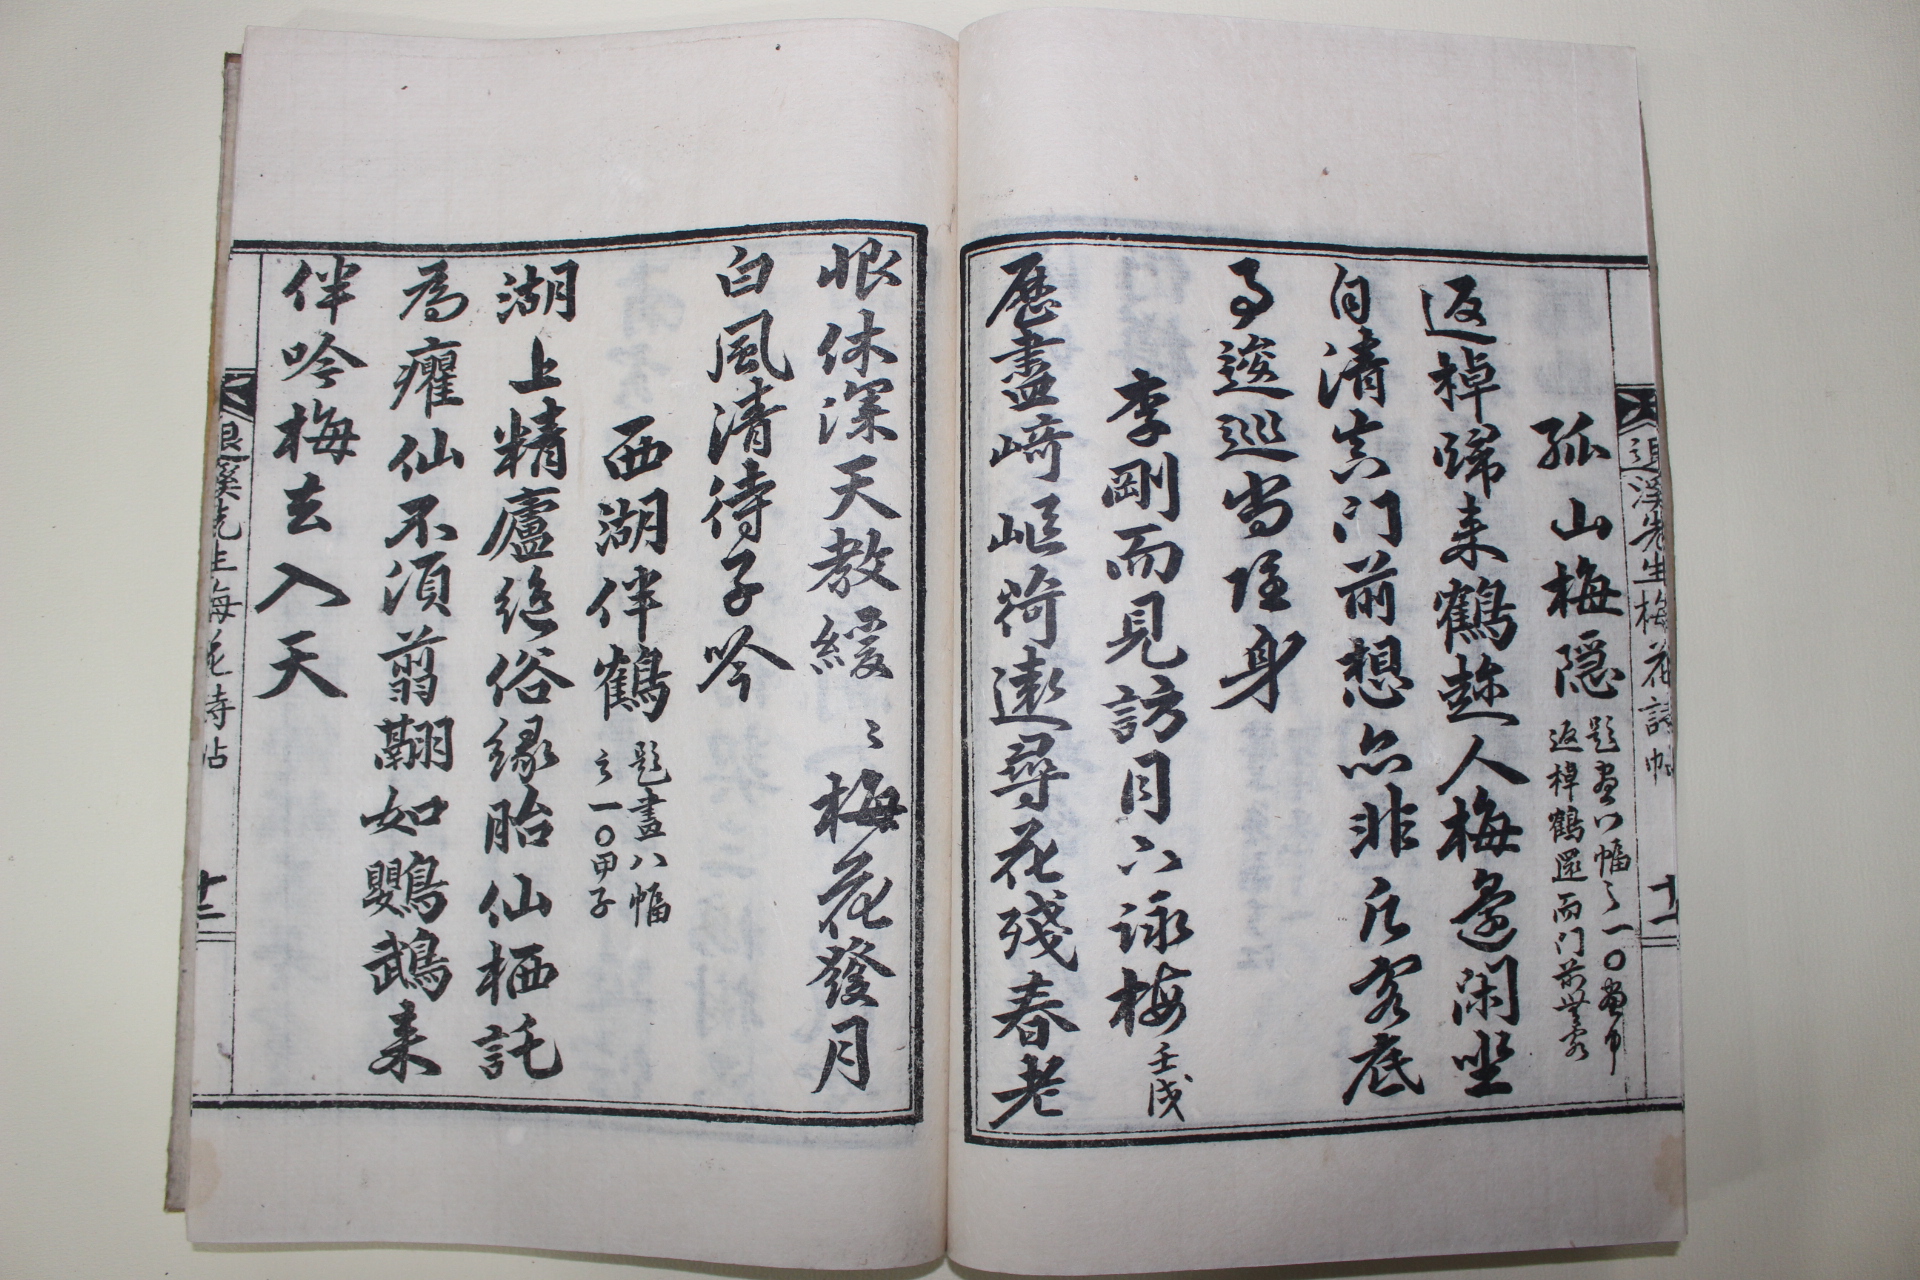 退溪先生梅花詩帖
十一
孤山梅隱
題畫八幅之一〇畫中
返棹鶴還而門前無客
返棹歸来鶴趂人梅邊閑坐
自清真门前想亦非凢客底
事逡巡尚隱身
李剛而見訪月下詠梅
壬戌
歷盡崎嶇荷遠尋花殘春老
恨休深天教緩〻梅花發月
白風清待子吟
西湖伴鶴
題畫八幅
之一〇甲子
湖上精廬絶俗緣胎仙栖託
為癯仙不須翦翮如鸚鵡来
伴吟梅去入天
退溪先生梅花詩帖
十二